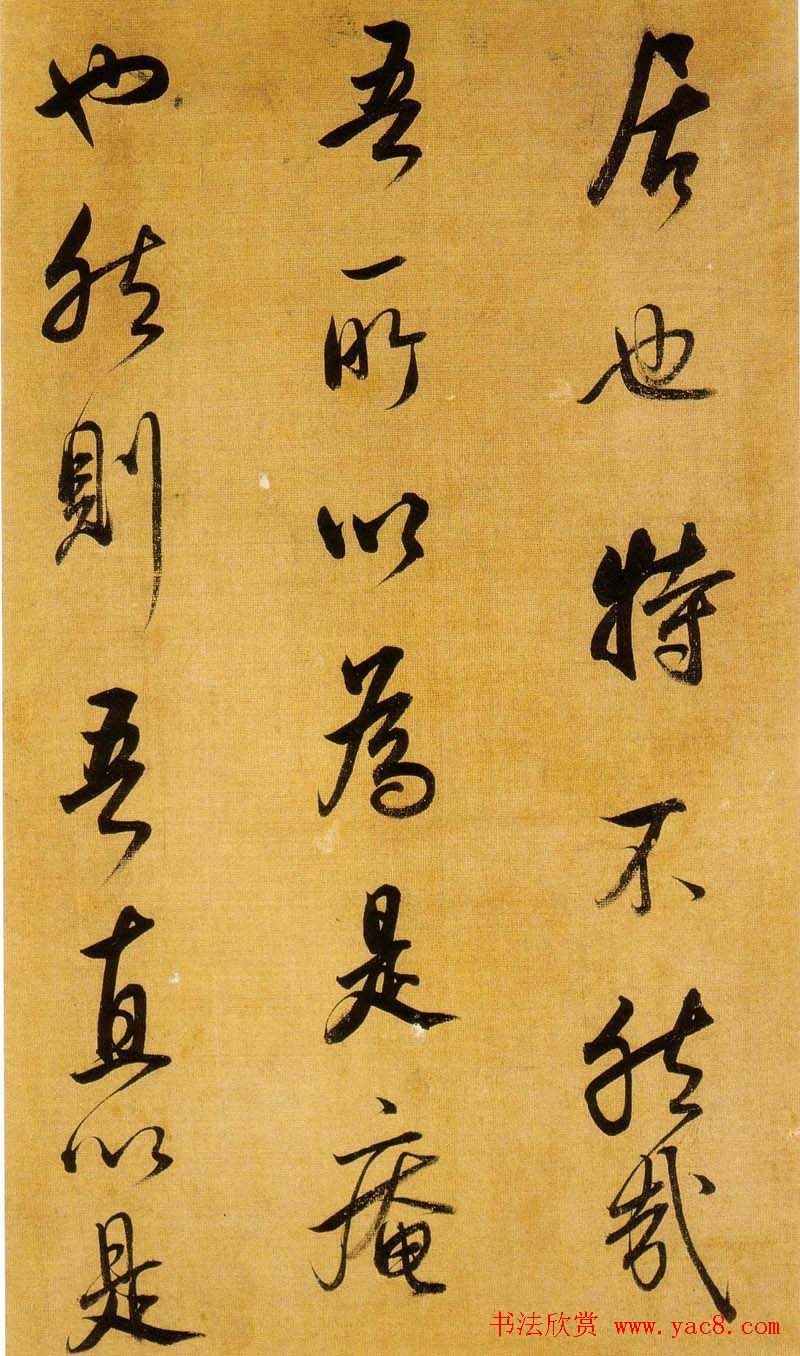 居也特不然哉
吾所以為是庵
也然則吾直以是
书法欣赏 www.yac8.com